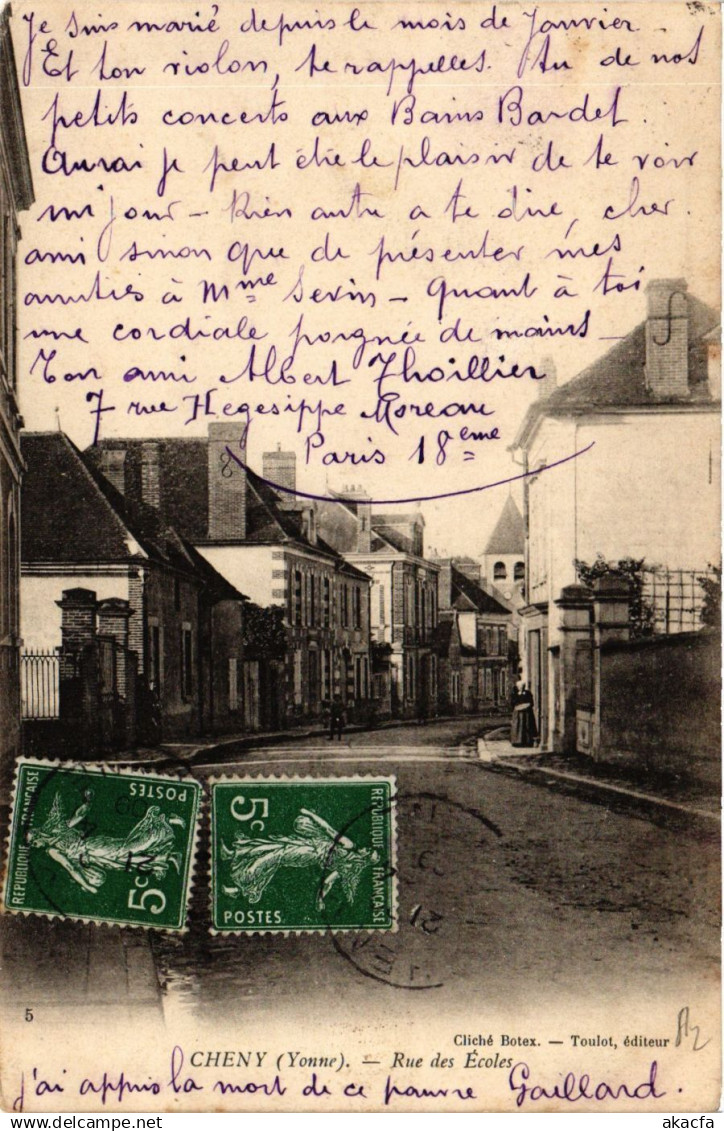 Je suis marié depuis le mois de Janvier.
Et ton violon, te rappelles-tu de nos
petits concerts aux Bains Bardet.
Aurai je peut être le plaisir de te voir
un jour - Rien autre a te dire, cher
ami sinon que de présenter mes
amitiés à Mme Sevin - Quant à toi
une cordiale poignée de mains -
Ton ami Albert Thoillier
7 rue Hegesippe Moreau
Paris 18eme
RÉPUBLIQUE FRANÇAISE
POSTES
5c
5c
POSTES
RÉPUBLIQUE FRANÇAISE
21
09
21
5
Cliché Botex. — Toulot, éditeur
CHENY (Yonne). — Rue des Écoles
J'ai appris la mort de ce pauvre Gaillard.
www.akacfa.com
akacfa